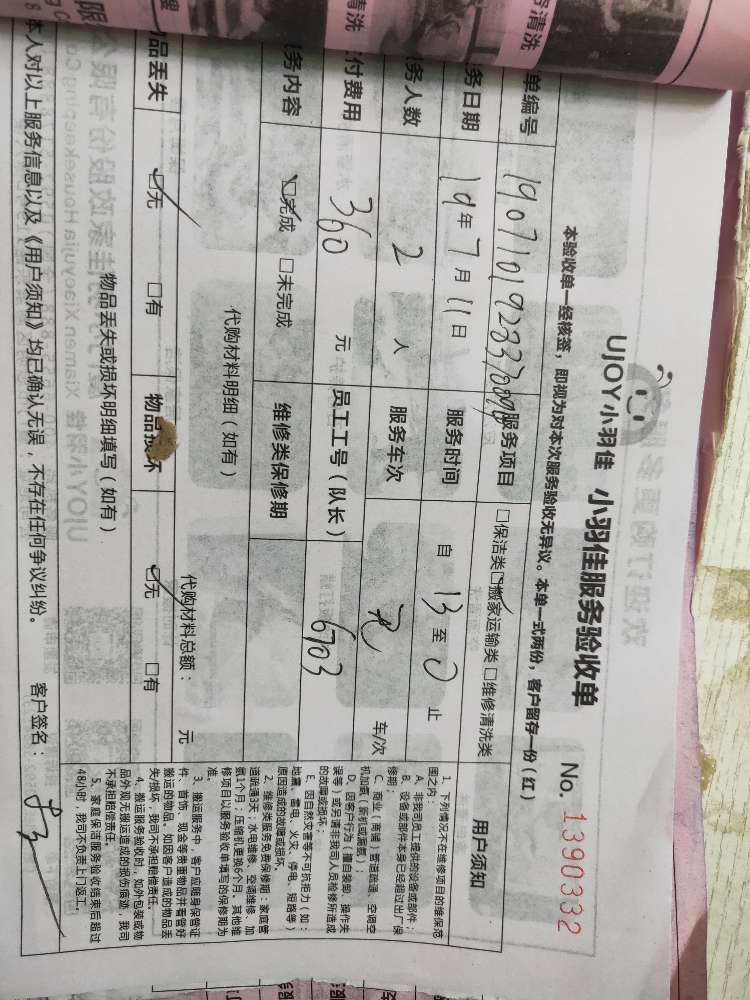 UJOY小羽佳 小羽佳服务验收单
No. 1390332
本验收单一经核签，即视为对本次服务验收无异议。本单一式两份，客户留存一份（红）
单编号
服务项目 □保洁类☑搬家运输类□维修清洗类
务日期 19年7月11日 服务时间 自 13 至 止
务人数 2 人 服务车次 车/次
付费用 360 元 员工工号（队长） 6703
务内容 ☑完成 □未完成 维修类保修期
代购材料明细（如有）
代购材料总额： 元
品丢失 ☑无 □有 物品损坏 ☑无 □有
物品丢失或损坏明细填写（如有）
本人对以上服务信息以及《用户须知》均已确认无误，不存在任何争议纠纷。 客户签名：
用户须知
1、下列情况不在维修项目的维保范
围之内：
A、非我司员工提供的设备或部件；
B、设备或部件本身已经超过出厂保
修期；
C、商业（商铺）管道疏通、空调空
机加氟（新机或漏氟）；
D、因客户行为（擅自装卸、操作失
误等）或另请非我司人员检修所造成
的故障或损坏；
E、因自然灾害等不可抗拒力（如：
地震、雷电、火灾、停电、短路等）
原因造成的故障或损坏。
2、维修类服务免费保修期：家庭管
道疏通3天、水电维修、空调维修、加
氟1个月，压缩机更换6个月。其他维
修项目以服务验收单填写的保修期为
准。
3、搬运服务中，客户应随身保管证
件、首饰、现金等贵重物品并看管好
搬运的物品，如因客户造成的物品丢
失/损坏，我司不承担赔偿责任。
4、搬运服务验收时，如外包装或物
品外观无搬运造成的损伤痕迹，我司
不承担赔偿责任。
5、家庭保洁服务验收结束后超过
48小时，我司不负责上门返工。